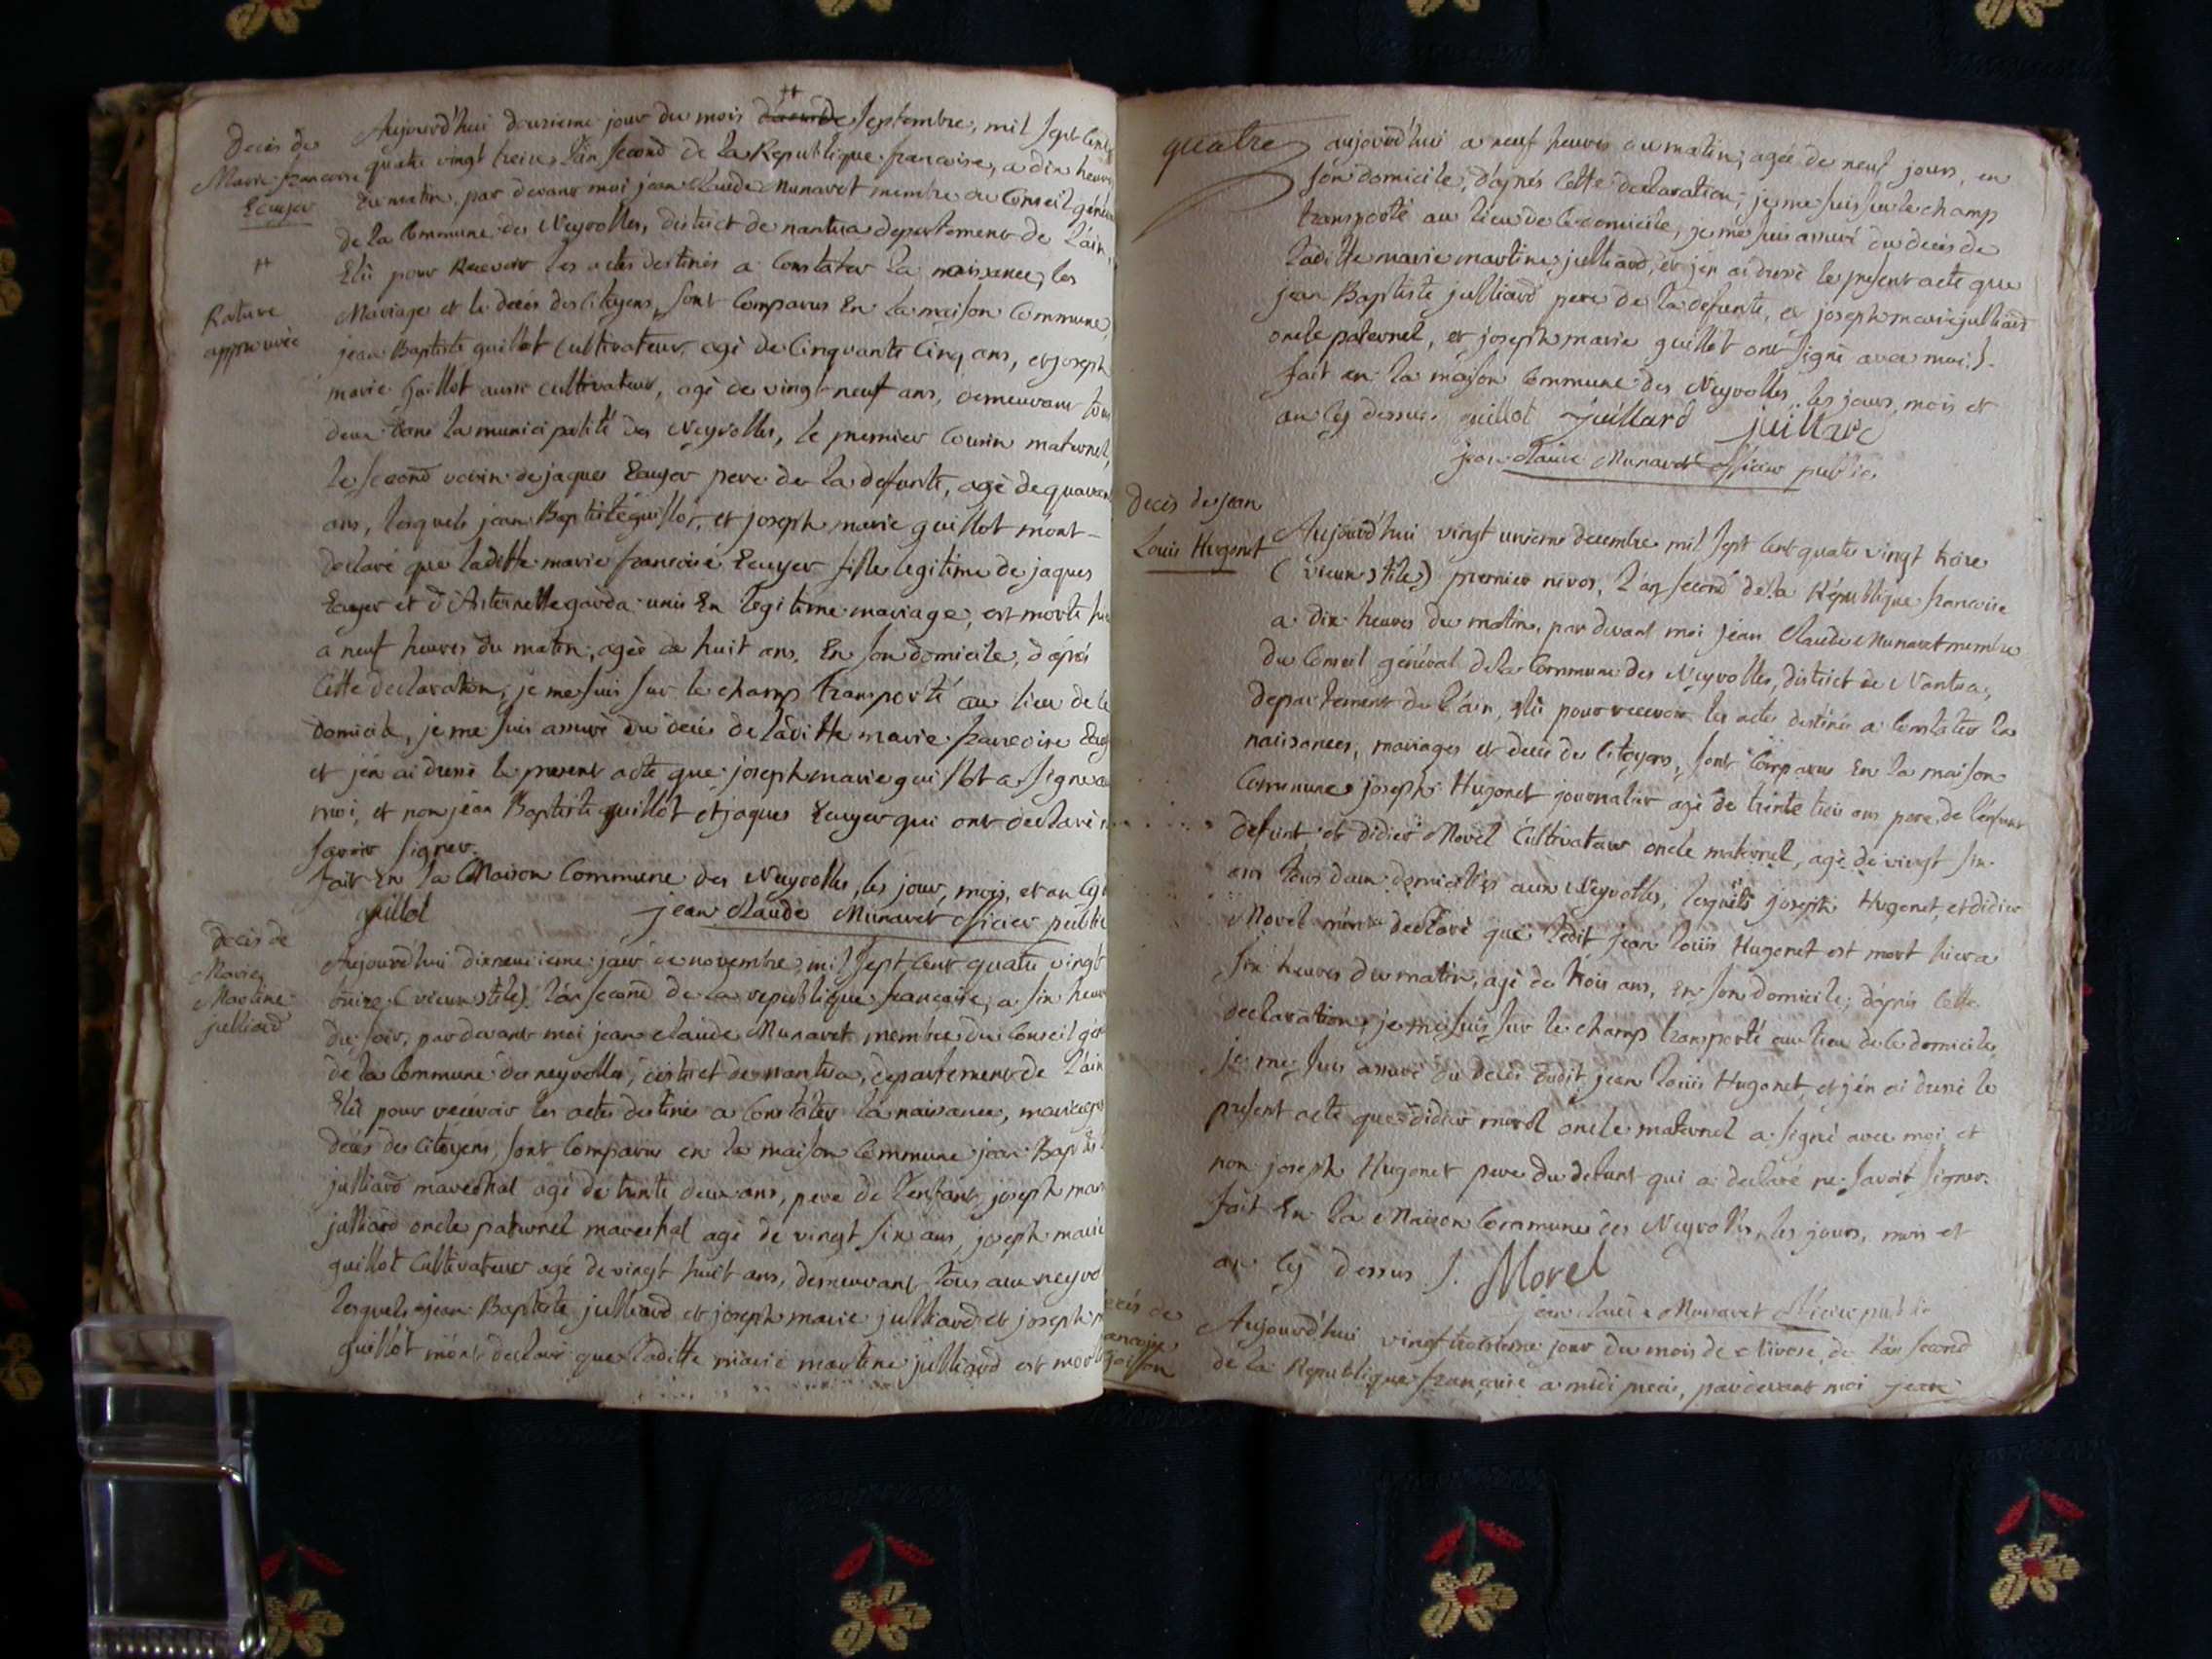 Decés de
Marie francoise
Ecuyer
++
Rature
approuvée
++
Aujourd'hui douzieme jour du mois de septembre, mil sept cent
quatre vingt treize l'an second de la Republique francoise, a dix heures
du matin, par devant moi jean Claude Munavet membre du Conseil génér
de la Commune des Neyrolles, district de nantua departement de l'ain,
Elû pour Recevoir les actes destinés a Constater la naissance, les
Mariage et le decés des Citoyens, sont Comparus En la maison Commune,
jean Baptiste guillot Cultivateur, agé de Cinquante Cinq ans, et joseph
marie guillot aussi cultivateur, agé de vingt neuf ans, demeurant tous
deux dans la municipalité des Neyrolles, le premier Cousin maternel,
le second voisin de jaques Ecuyer pere de la defunte, agé de quarante
ans, lesquels jean Baptiste guillot, et joseph marie guillot m'ont
declaré que laditte marie francoise Ecuyer fille legitime de jaques
Ecuyer et d'Anternette garda unis En legitime mariage, est morte hier
a neuf heures du matin, agée de huit ans, En son domicile, d'aprés
Cette declaration, je me suis sur le champ transporté au lieu de ce
domicile, je me suis assuré du decés de laditte marie francoise Ecuy
et j'en ai dressé le present acte que joseph marie guillot a signé a
moi, et non jean Baptiste guillot et jaques Ecuyer qui ont declaré n
savoir signer.
fait En la Maison Commune des Neyrolles, les jour, mois, et an Cy
guillot jean Claude Munavet officier public
Decés de
Marie
Martine
julliard
Aujourd'hui dixneuvieme jour de novembre, mil sept cent quatre vingt
treize (vieux stile) l'an second de la republique francoise, a six heures
du soir, par devant moi jean claude Munavet membre du Conseil gén
de la Commune des neyrolles, district de nantua, departement de l'ain
Elû pour recevoir les actes destinés a Constater la naissance, mariages
decés des Citoyens, sont Comparus en la maison Commune jean Baptis
julliard marechal agé de trente deux ans, pere de l'enfant, joseph mar
julliard oncle paternel marechal agé de vingt six ans, joseph marie
guillot Cultivateur agé de vingt huit ans, demeurant tous aux neyro
lesquels jean Baptiste julliard et joseph marie julliard et joseph m
guillot m'ont declaré que laditte marie martine julliard est morte
quatre
aujourd'hui a neuf heures du matin, agée de neuf jours, en
son domicile, d'aprés Cette declaration, je me suis sur le champ
transporté au lieu de ce domicile, je me suis assuré du decés de
laditte marie martine julliard, et j'en ai dressé le present acte que
jean Baptiste julliard pere de la defunte, et joseph marie julliard
oncle paternel, et joseph marie guillot ont signé avec moi.
fait en la maison Commune des Neyrolles, les jours, mois et
an cy dessus. guillot juillard juillard
jean Claude Munavet officier public
Decés de jean
Louis Hugonet
Aujourd'hui vingt unieme decembre mil sept cent quatre vingt treize
(vieux stile) premier nivos, l'an second de la République francoise
a dix heures du matin, par devant moi jean Claude Munavet membre
du Conseil général de la Commune des Neyrolles, district de Nantua,
departement de l'ain, Elû pour recevoir les actes destinés a Constater les
naissances, mariages et decés des Citoyens, sont Comparus En la maison
Commune, joseph Hugonet journalier agé de trente trois ans pere de l'enfant
defunt, et didier Morel Cultivateur oncle maternel, agé de vingt six
ans tous deux domiciliés aux Neyrolles, lesquels joseph Hugonet, et didier
Morel m'ont declaré que ledit jean louis Hugonet est mort hier a
six heures du matin, agé de trois ans, En son domicile, d'aprés Cette
declaration, je me suis sur le champ transporté au lieu de ce domicile,
je me suis assuré du decés dudit jean louis Hugonet, et j'en ai dressé le
present acte que didier morel oncle maternel a signé avec moi, et
non joseph Hugonet pere du defunt qui a declaré ne savoir signer.
fait En la Maison Commune des Neyrolles, les jours, mois et
an Cy dessus. Morel
jean claude Munavet officier public
ecés de
ancoise
Aujourd'hui vingt troisieme jour du mois de Nivose, de l'an second
de la Republique francoise a midi precis, par devant moi jean